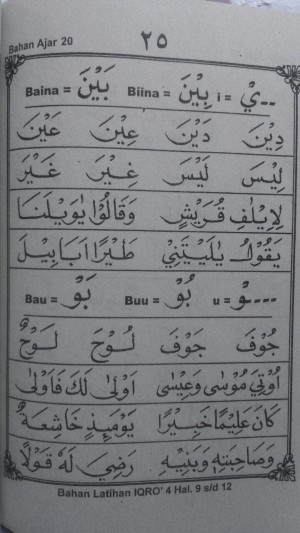 Bahan Ajar 20
٢٥
Baina = بَيْنَ Biina = بِيْنَ i = ـِـيْ
دِيْنَ دَيْنَ عِيْنَ عَيْنَ
لِيْسَ لَيْسَ غِيْرَ غَيْرَ
لِاِيْلٰفِ قُرَيْشٍ وَقَالُوْا يٰوَيْلَنَا
يَقُوْلُ يٰلَيْتَنِيْ طَيْرًا اَبَابِيْلَ
Bau = بَوْ Buu = بُوْ u = ـُـوْ
جُوْفَ جَوْفَ لُوْحَ لَوْحٌ
اُوْتِيَ مُوْسٰى وَعِيْسٰى اَوْلٰى لَكَ فَاَوْلٰى
كَانَ عَلِيْمًا خَبِيْرًا يَوْمَىِٕذٍ خَاشِعَةٌ
وَصَاحِبَتِهٖ وَبَنِيْهِ رَضِيَ لَهٗ قَوْلًا
Bahan Latihan IQRO' 4 Hal. 9 s/d 12